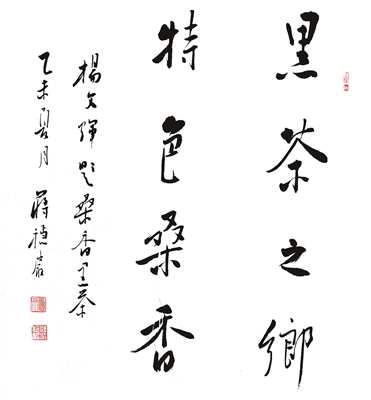 黑茶之鄉
特色桑香
楊文輝題桑香黑茶
乙未夏月 蔣